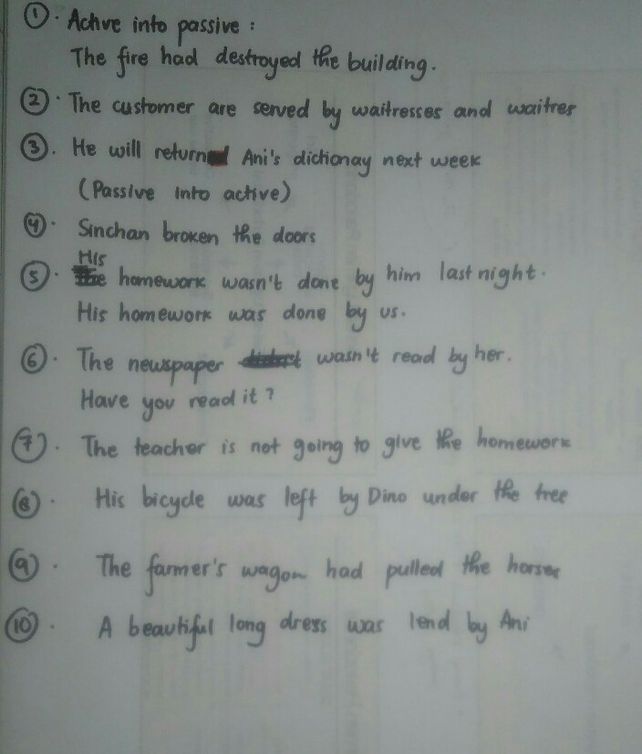 ①. Active into passive :
The fire had destroyed the building.
②. The customer are served by waitresses and waitres
③. He will return Ani's dictionay next week
(Passive into active)
④. Sinchan broken the doors
His
⑤. homework wasn't done by him last night.
His homework was done by us.
⑥. The newspaper wasn't read by her.
Have you read it ?
⑦. The teacher is not going to give the homework
⑧. His bicycle was left by Dino under the tree
⑨. The farmer's wagon had pulled the horses
⑩. A beautiful long dress was lend by Ani